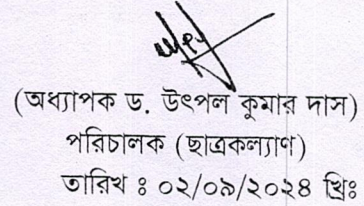 (অধ্যাপক ড. উৎপল কুমার দাস)
পরিচালক (ছাত্রকল্যাণ)
তারিখ ঃ ০২/০৯/২০২৪ খ্রিঃ